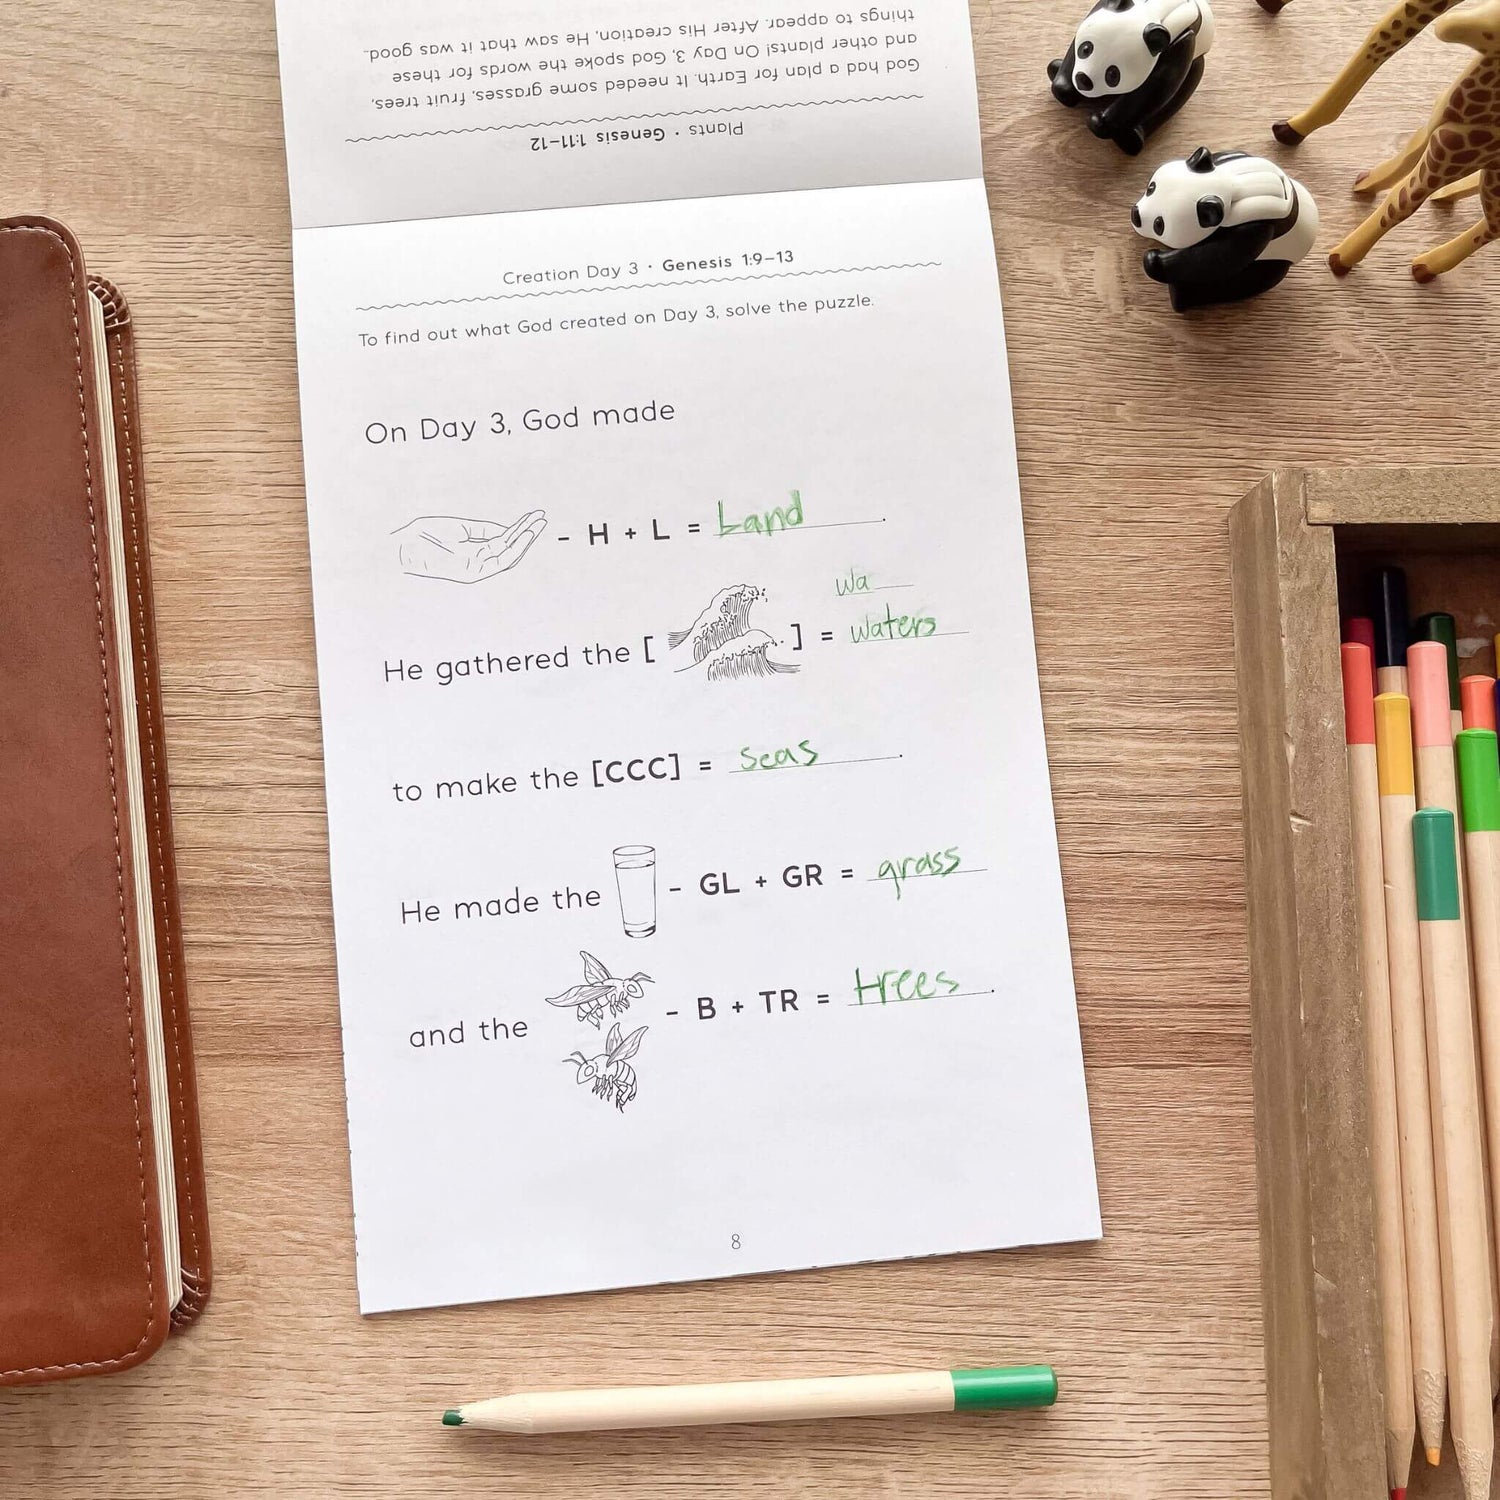 Plants · Genesis 1:11–12
God had a plan for Earth. It needed some grasses, fruit trees,
and other plants! On Day 3, God spoke the words for these
things to appear. After His creation, He saw that it was good.
Creation Day 3 · Genesis 1:9–13
To find out what God created on Day 3, solve the puzzle.
On Day 3, God made
- H + L = Land.
wa
He gathered the [ ] = waters
to make the [CCC] = seas.
He made the - GL + GR = grass
and the - B + TR = trees.
8